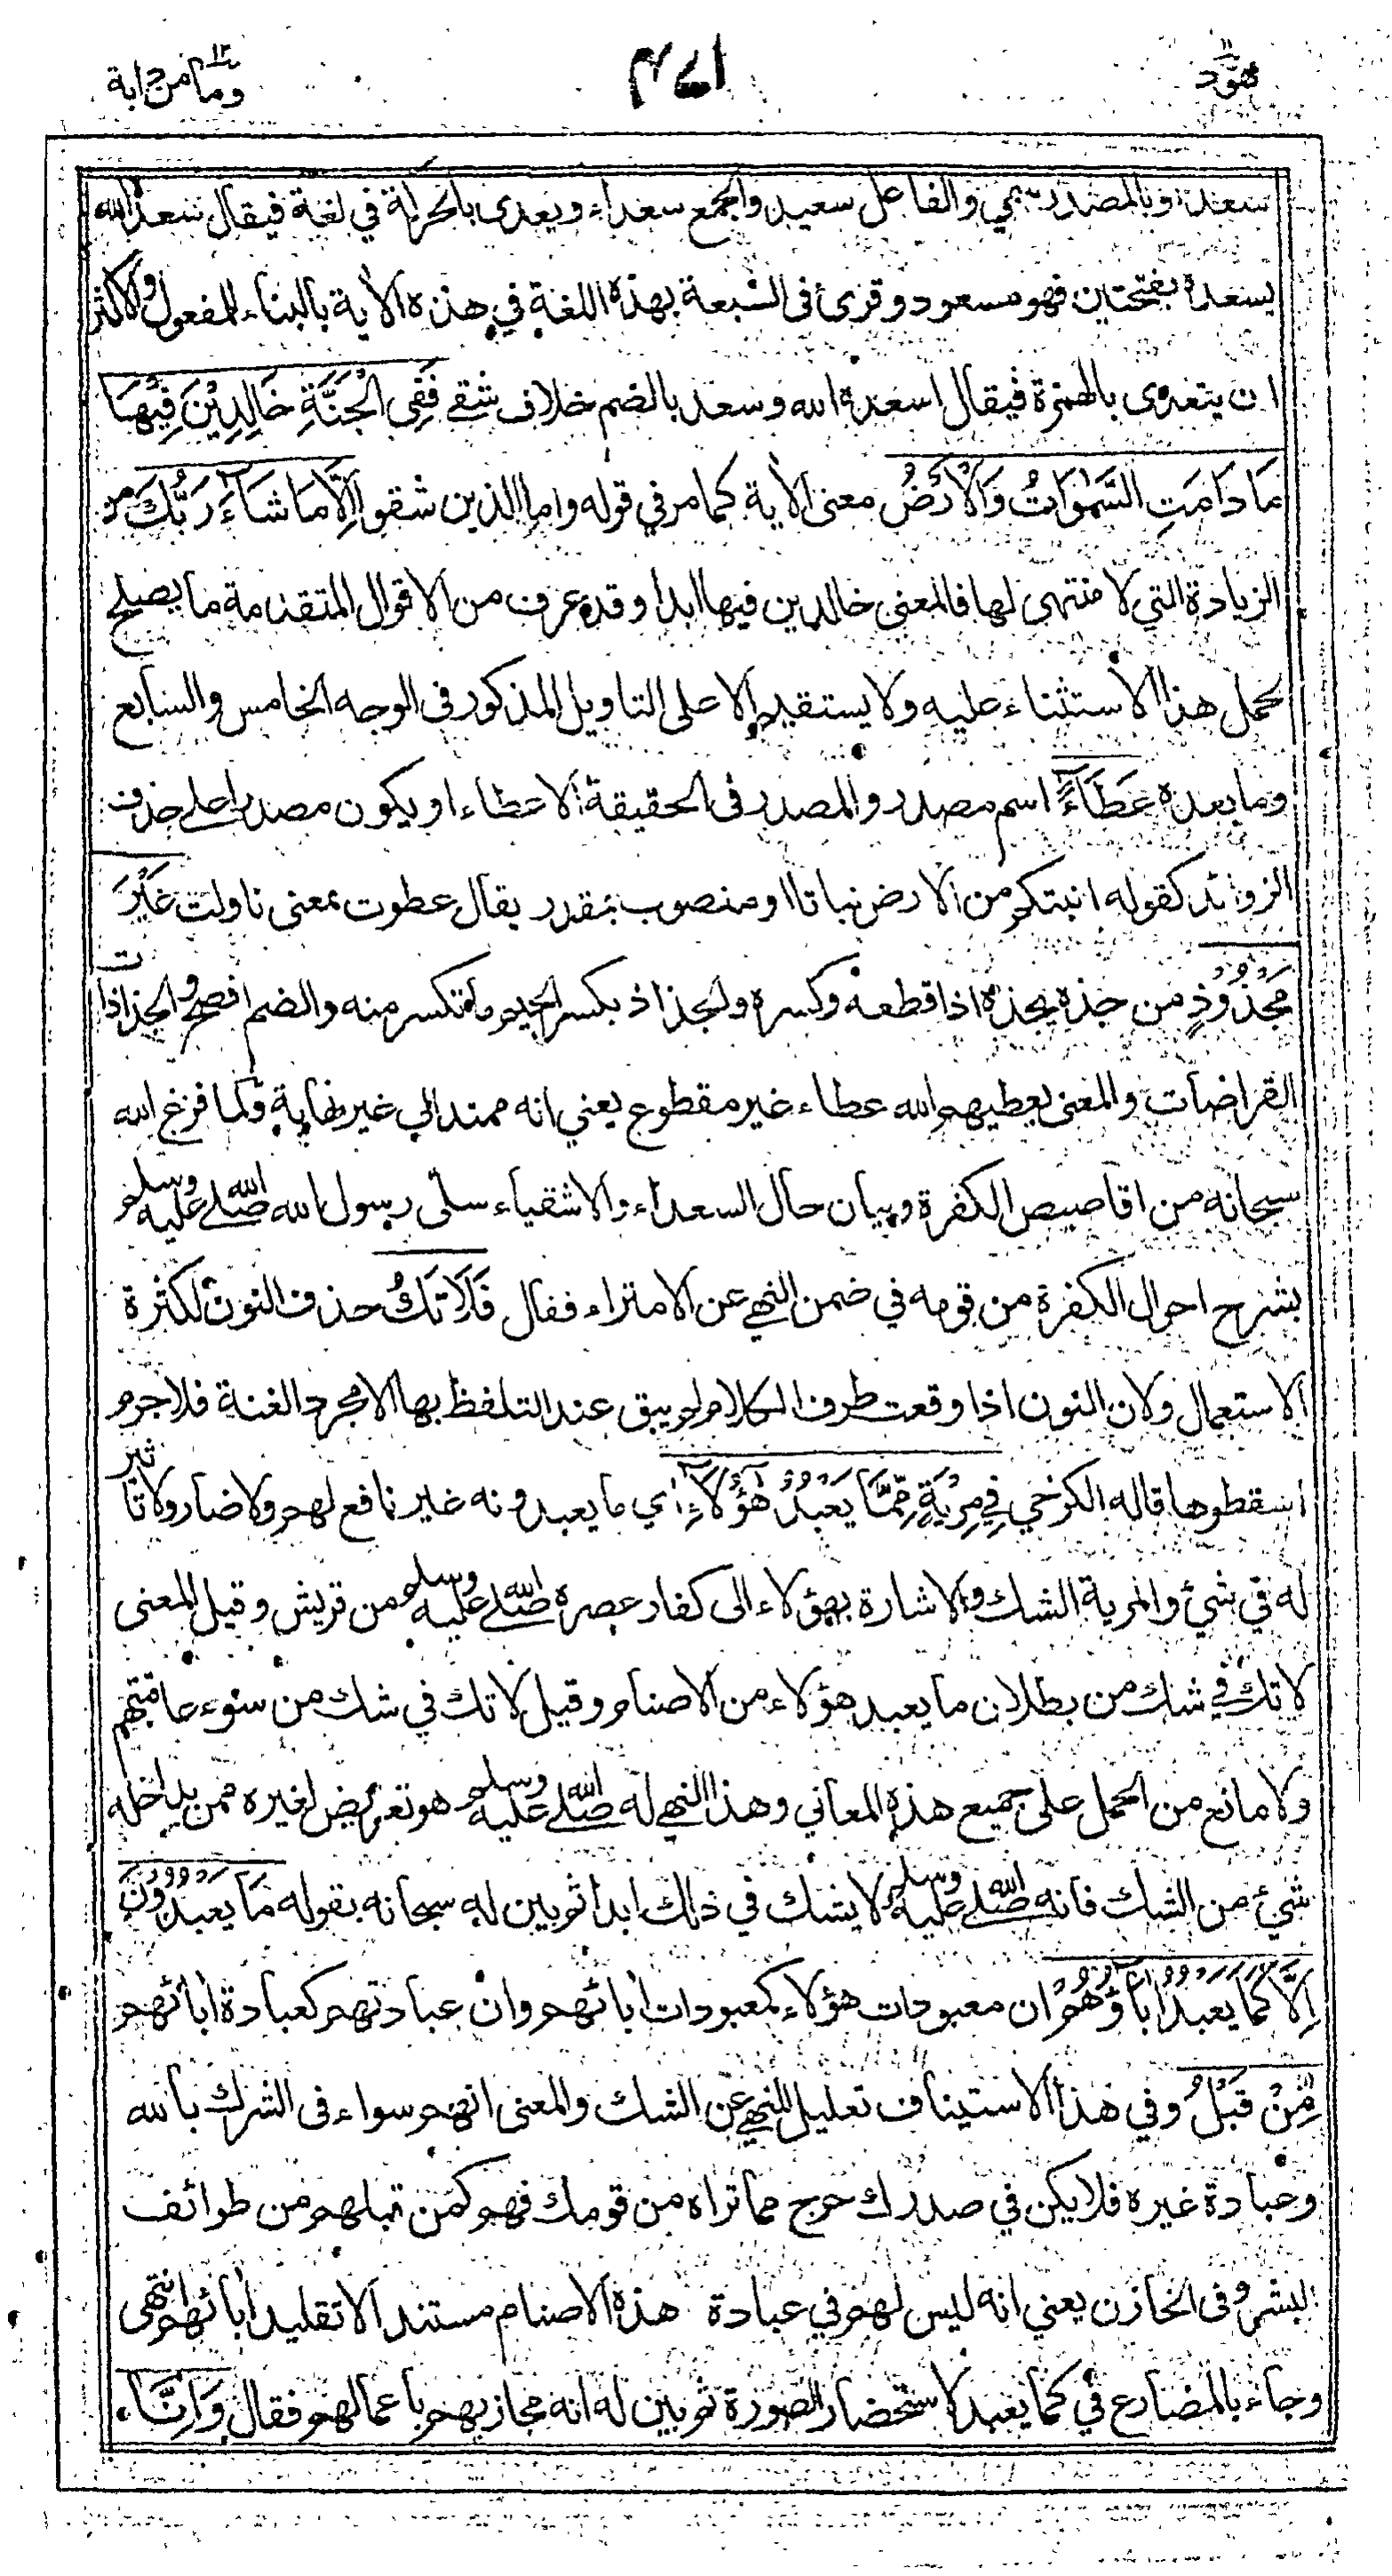 هود ١١
٤٧١
وما من دابة ١٢
سعدا وبالمصدر سمي والفاعل سعيد والجمع سعداء ويعدى بالحركة في لغة فيقال سعده الله
يسعده بفتحتين فهو مسعود وقرئ في السبعة بهذه اللغة في هذه الآية بالبناء للمفعول والاكثر
ان يتعدى بالهمزة فيقال اسعده الله وسعد بالضم خلاف شقي فَفِي الْجَنَّةِ خَالِدِيْنَ فِيْهَا
مَا دَامَتِ السَّمٰوَاتُ وَالْاَرْضُ معنى الآية كما مر في قوله واما الذين شقوا اِلَّا مَا شَاءَ رَبُّكَ من
الزيادة التي لا منتهى لها فالمعنى خالدين فيها ابدا وقد عرف من الاقوال المتقدمة ما يصلح
لحمل هذا الاستثناء عليه ولا يستقيم الا على التاويل المذكور في الوجه الخامس والسابع
وما بعده عَطَاءً اسم مصدر والمصدر في الحقيقة الاعطاء او يكون مصدرا على حذف
الزوائد كقوله انبتكم من الارض نباتا او منصوب بمقدر يقال عطوت بمعنى ناولت غَيْرَ
مَجْذُوْذٍ من جذه يجذه اذا قطعه وكسره والجذاذ بكسر الجيم ما تكسر منه والضم افصح والجذاذات
القراضات والمعنى يعطيهم الله عطاء غير مقطوع يعني انه ممتد الى غير نهاية ولما فرغ الله
سبحانه من اقاصيص الكفرة وبيان حال السعداء والاشقياء سلى رسول الله صلى الله عليه وسلم
بشرح احوال الكفرة من قومه في ضمن النهي عن الامتراء فقال فَلَا تَكُ حذف النون لكثرة
الاستعمال ولان النون اذا وقعت طرف الكلام لم يبق عند التلفظ بها الا مجرد الغنة فلا جرم
اسقطوها قاله الكرخي فِيْ مِرْيَةٍ مِّمَّا يَعْبُدُ هٰؤُلَاءِ اي ما يعبدونه غير نافع لهم ولا ضار ولا تاثير
له في شئ والمرية الشك والاشارة بهؤلاء الى كفار عصره صلى الله عليه وسلم من قريش وقيل المعنى
لا تك في شك من بطلان ما يعبد هؤلاء من الاصنام وقيل لا تك في شك من سوء عاقبتهم
ولا مانع من الحمل على جميع هذه المعاني وهذا النهي له صلى الله عليه وسلم هو تعريض لغيره ممن يداخله
شئ من الشك فانه صلى الله عليه وسلم لا يشك في ذلك ابدا ثم بين له سبحانه بقوله مَا يَعْبُدُوْنَ
اِلَّا كَمَا يَعْبُدُ اٰبَاؤُهُمْ ان معبودات هؤلاء كمعبودات ابائهم وان عبادتهم كعبادة ابائهم
مِّنْ قَبْلُ وفي هذا الاستيناف تعليل للنهي عن الشك والمعنى انهم سواء في الشرك بالله
وعبادة غيره فلا يكن في صدرك حرج مما تراه من قومك فهم كمن قبلهم من طوائف
البشر وفي الخازن يعني انه ليس لهم في عبادة هذه الاصنام مستند الا تقليد ابائهم انتهى
وجاء بالمضارع في كما يعبد لاستحضار الصورة ثم بين له انه مجازيهم باعمالهم فقال وَاِنَّا